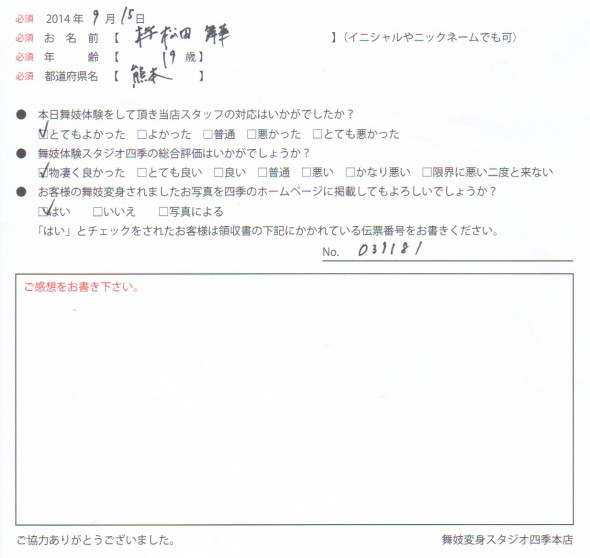 必須 2014年 9月 15日
必須 お名前【 松田 】(イニシャルやニックネームでも可)
必須 年齢【 19歳】
必須 都道府県名【 熊本 】
● 本日舞妓体験をして頂き当店スタッフの対応はいかがでしたか?
☑とてもよかった □よかった □普通 □悪かった □とても悪かった
● 舞妓体験スタジオ四季の総合評価はいかがでしょうか?
☑物凄く良かった □とても良い □良い □普通 □悪い □かなり悪い □限界に悪い二度と来ない
● お客様の舞妓変身されましたお写真を四季のホームページに掲載してもよろしいでしょうか?
☑はい □いいえ □写真による
「はい」とチェックをされたお客様は領収書の下記にかかれている伝票番号をお書きください。
No. 039181
ご感想をお書き下さい。
ご協力ありがとうございました。 舞妓変身スタジオ四季本店